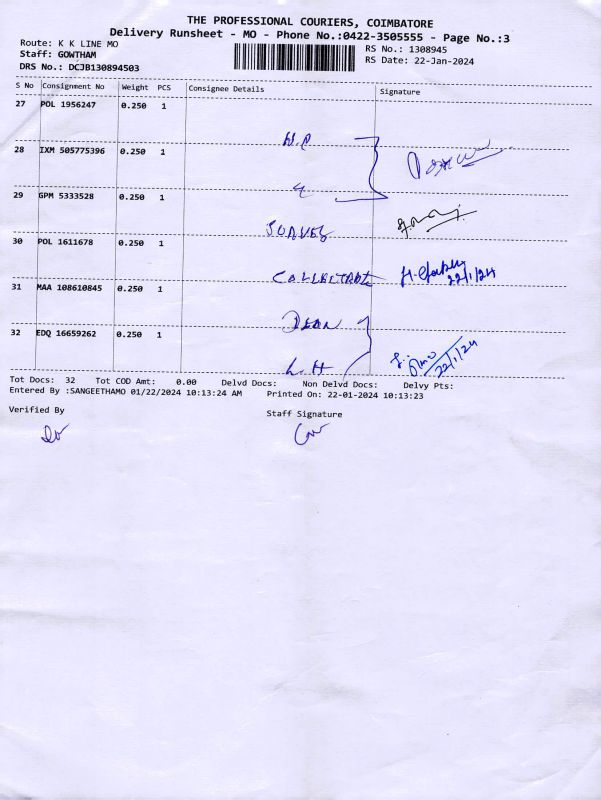 THE PROFESSIONAL COURIERS, COIMBATORE
Delivery Runsheet - MO - Phone No.:0422-3505555 - Page No.:3
Route: K K LINE MO
RS No.: 1308945
Staff: GOWTHAM
RS Date: 22-Jan-2024
DRS No.: DCJB130894503
S No Consignment No Weight PCS Consignee Details Signature
27 POL 1956247 0.250 1
H.P
28 IXM 505775396 0.250 1
29 GPM 5333528 0.250 1
30 POL 1611678 0.250 1
22/1/24
31 MAA 108610845 0.250 1
DEAN
32 EDQ 16659262 0.250 1
22/1/24
L.H
Tot Docs: 32 Tot COD Amt: 0.00 Delvd Docs: Non Delvd Docs: Delvy Pts:
Entered By :SANGEETHAMO 01/22/2024 10:13:24 AM Printed On: 22-01-2024 10:13:23
Verified By
Staff Signature